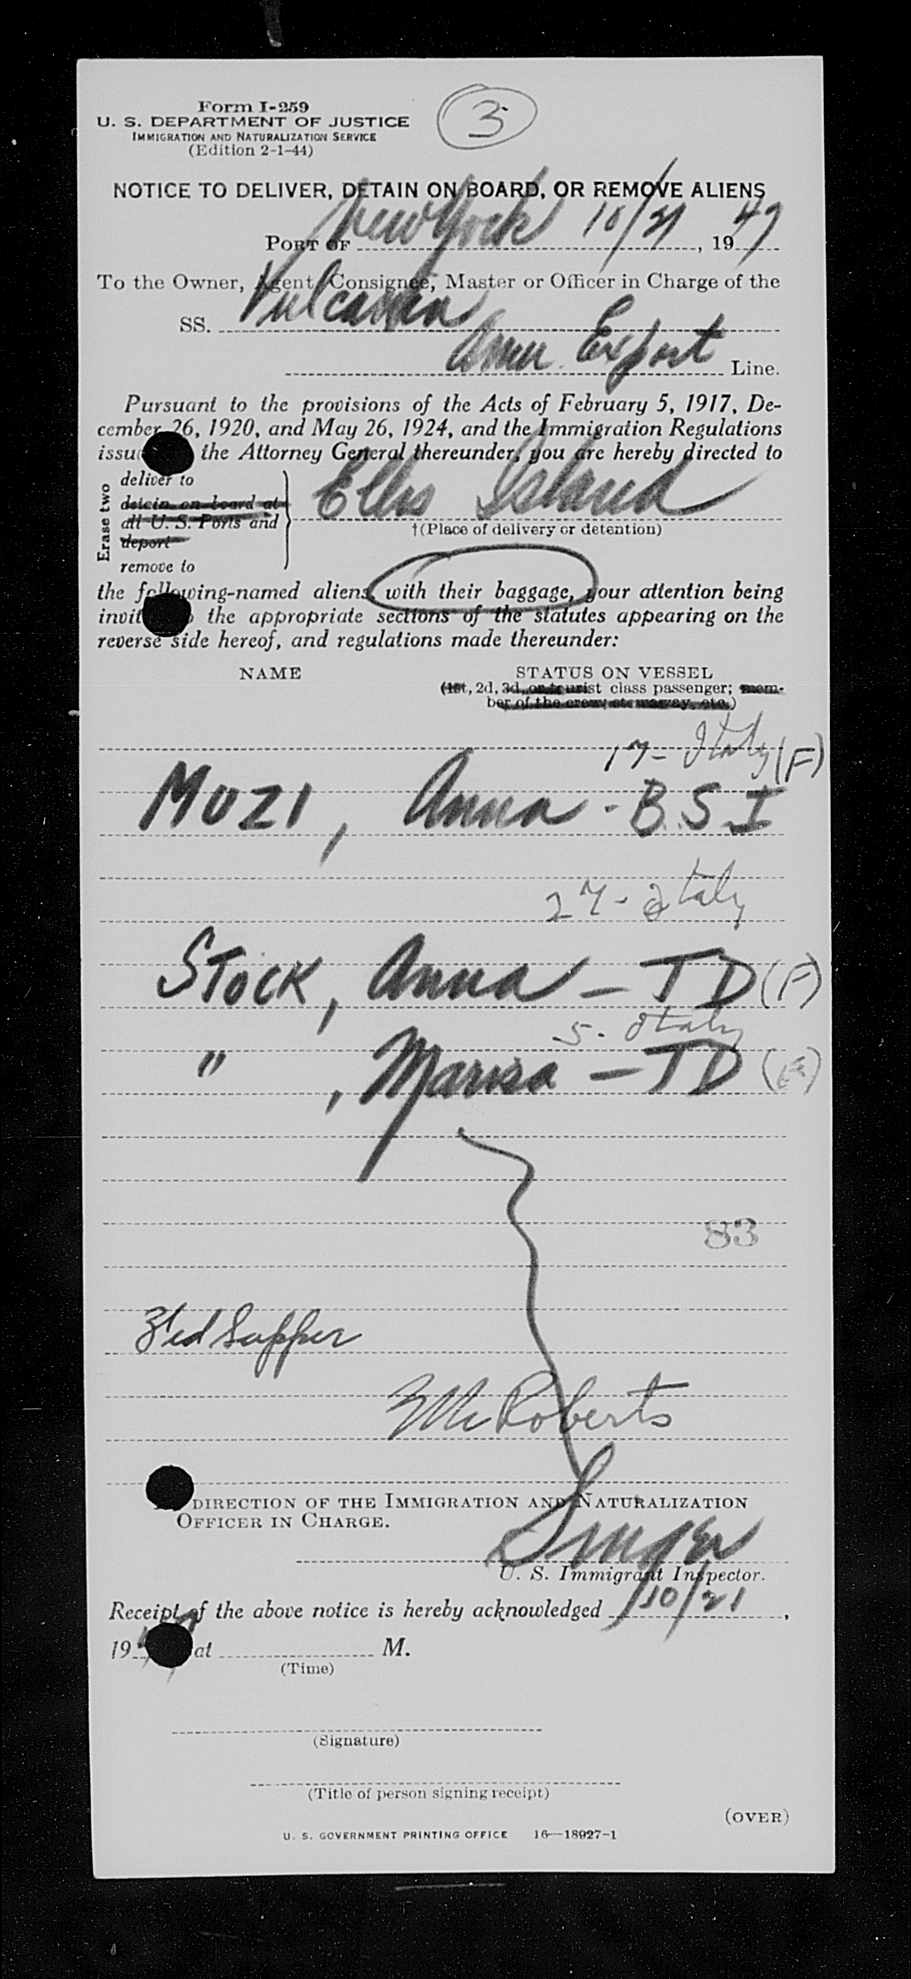 Form I-259
U. S. DEPARTMENT OF JUSTICE
IMMIGRATION AND NATURALIZATION SERVICE
(Edition 2-1-44)
3
NOTICE TO DELIVER, DETAIN ON BOARD, OR REMOVE ALIENS
PORT OF New York 10/21, 1947
To the Owner, Agent, Consignee, Master or Officer in Charge of the
SS. Vulcania
Amer. Export Line.
Pursuant to the provisions of the Acts of February 5, 1917, De-
cember 26, 1920, and May 26, 1924, and the Immigration Regulations
issu the Attorney General thereunder, you are hereby directed to
Erase two
deliver to
detain on board at
all U. S. Ports and
deport
remove to
Ellis Island
†(Place of delivery or detention)
the following-named aliens, with their baggage, your attention being
invit the appropriate sections of the statutes appearing on the
reverse side hereof, and regulations made thereunder:
NAME STATUS ON VESSEL
(1st, 2d, 3d, or tourist class passenger; mem-
ber of the crew, stowaway, etc.)
17 - Italy (F)
MUZI, Anna - B.S.I
27 - Italy
STOCK, Anna - TD (F)
5 - Italy
" , Marisa - TD
83
Supper
McRoberts
DIRECTION OF THE IMMIGRATION AND NATURALIZATION
OFFICER IN CHARGE.
Singer
U. S. Immigrant Inspector.
Receipt of the above notice is hereby acknowledged 10/21,
19 at M.
(Time)
(Signature)
(Title of person signing receipt)
(OVER)
U. S. GOVERNMENT PRINTING OFFICE 16—18927-1